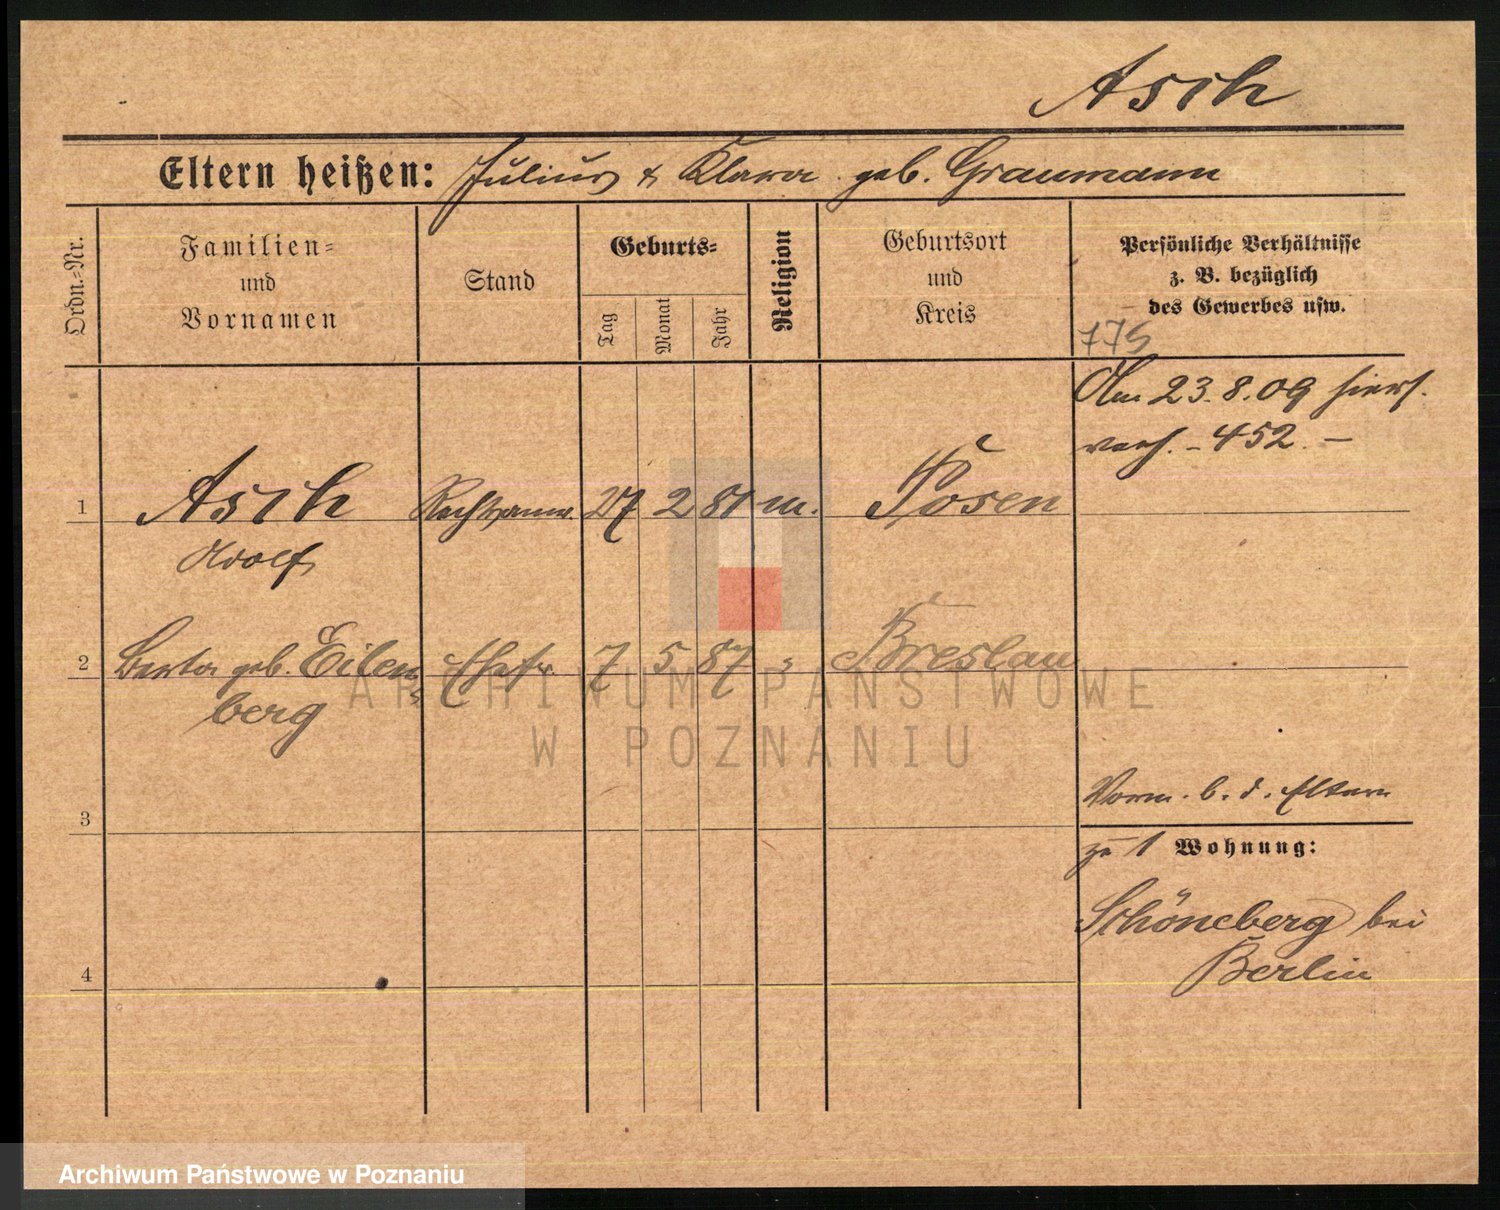 Asch
Eltern heißen: Julius & Klara geb. Graumann
Ordn.-Nr.
Familien-
und
Vornamen
Stand
Geburts-
Tag
Monat
Jahr
Religion
Geburtsort
und
Kreis
Persönliche Verhältnisse
z. B. bezüglich
des Gewerbes usw.
775
Am 23.8.09 hiers.
verh. - 452. -
1 Asch Rechtsanw. 27 2 81 m. Posen
Adolf
2 Berta geb. Eilen Ehefr. 7 5 87 Breslau
berg
ARCHIWUM PAŃSTWOWE
W POZNANIU
3
Vorm. b. d. Eltern
zu 1 Wohnung:
Schöneberg bei
Berlin
4
Archiwum Państwowe w Poznaniu